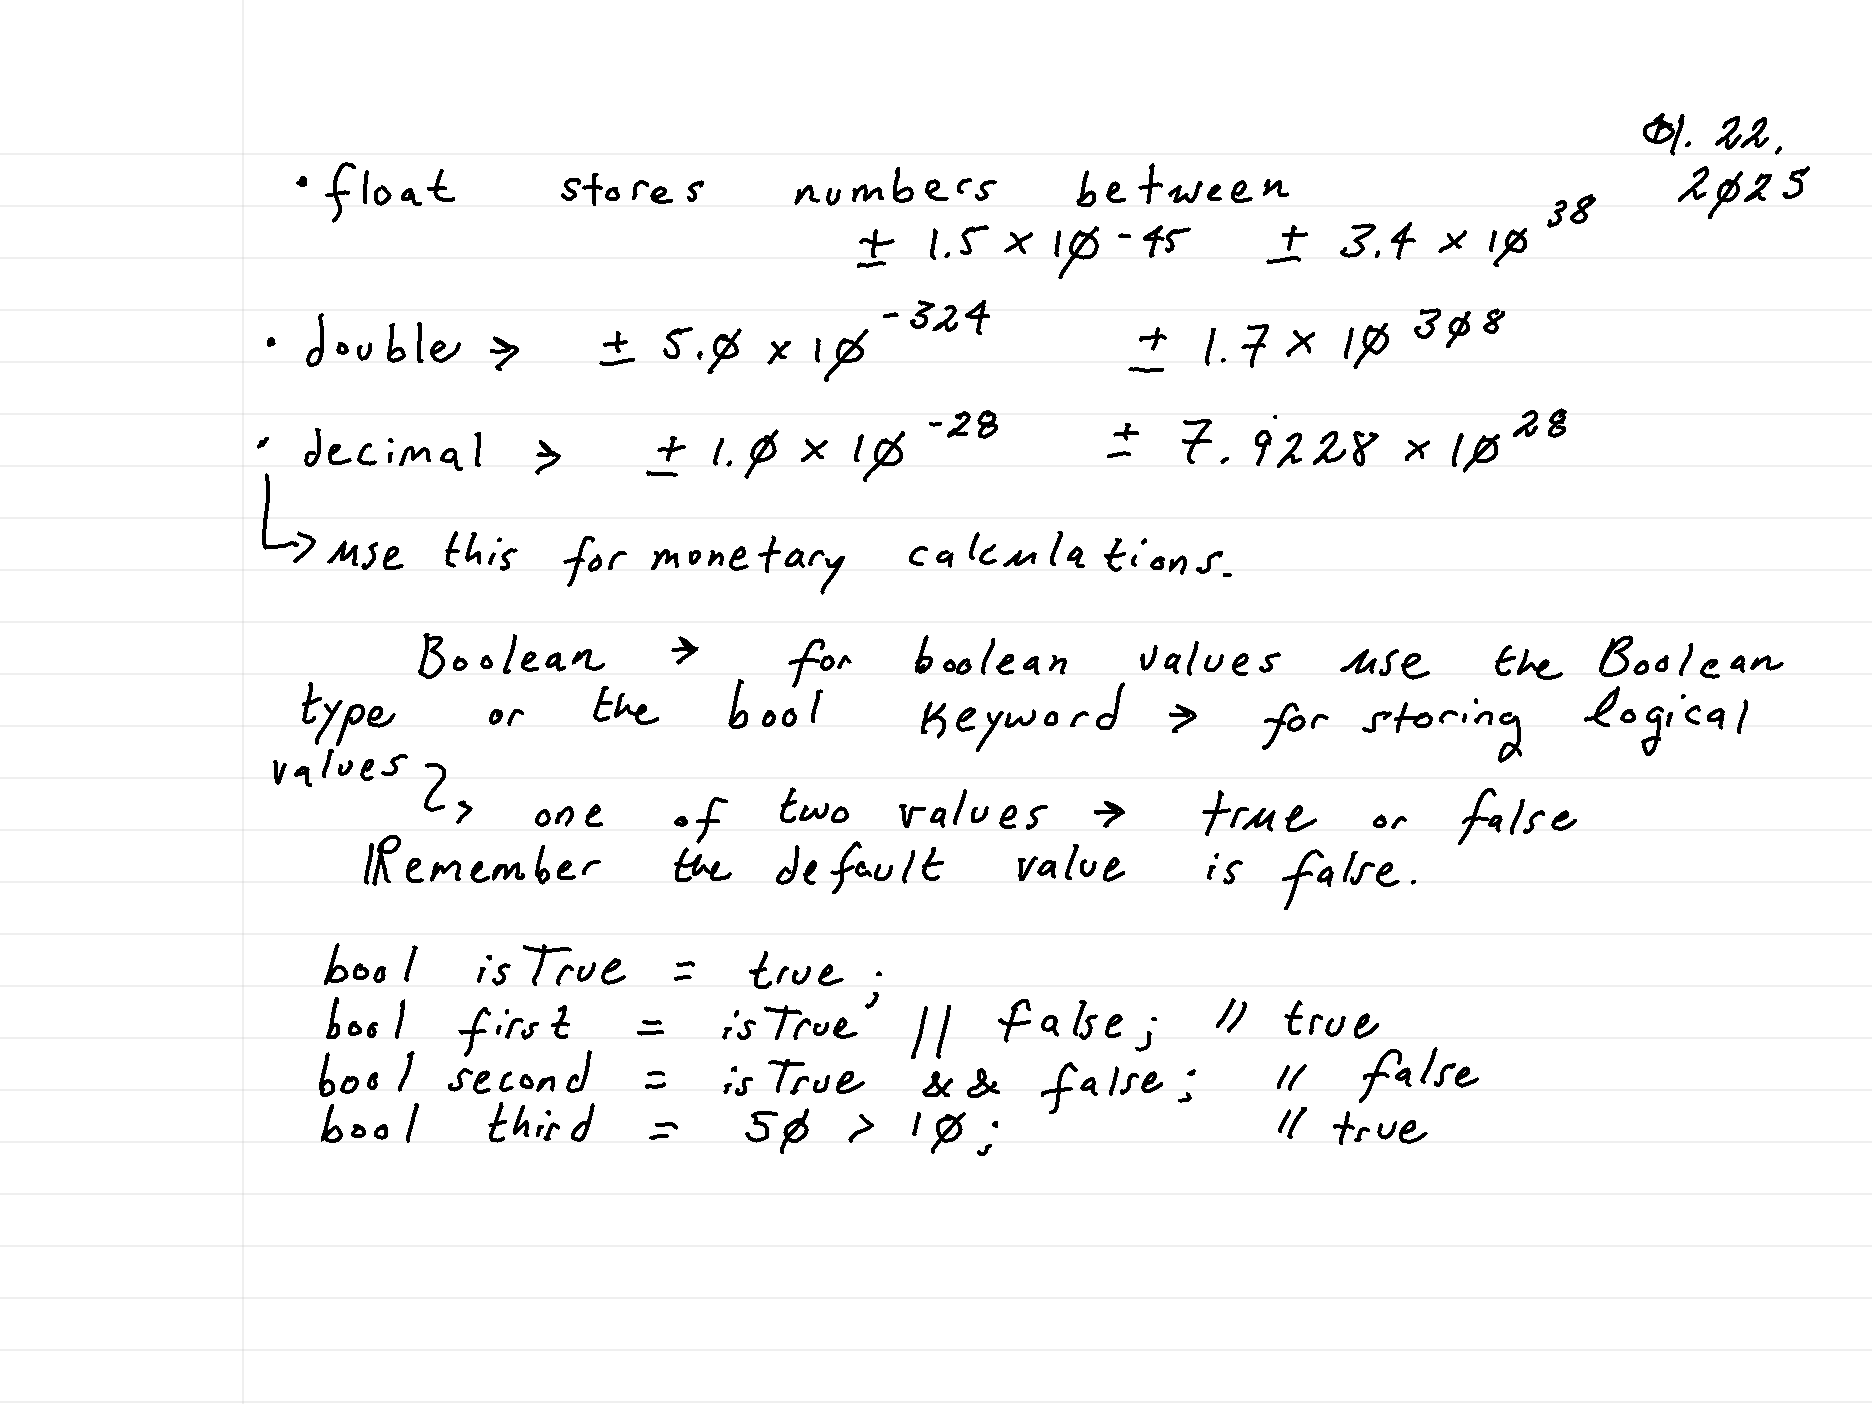 01. 22.
2025
• float stores numbers between
± 1.5 × 10 - 45 ± 3.4 × 10³⁸
• double → ± 5.0 × 10⁻³²⁴ ± 1.7 × 10³⁰⁸
• decimal → ± 1.0 × 10⁻²⁸ ± 7.9228 × 10²⁸
↳ use this for monetary calculations.
Boolean → for boolean values use the Boolean
type or the bool keyword → for storing logical
values
↳ one of two values → true or false
Remember the default value is false.
bool isTrue = true;
bool first = isTrue || false; // true
bool second = isTrue && false; // false
bool third = 50 > 10; // true